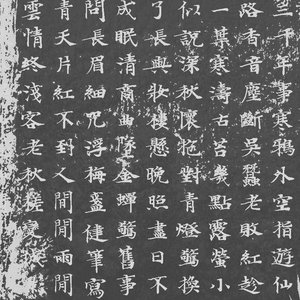 竺千年事寒鴉外空指遊仙
路香音塵斷吳蠶老敗紅趁
一葉寒濤古苔幾點露螢小
似說深秋懷抱對青燈翳換
了長與妝樓懸晚照盡日不
成眠清商曲墜金蟬翳舊事
問長眉細咒浮梅盞健筆寫
青天片紅不到人間聞雨閒
雲情終淺客老秋